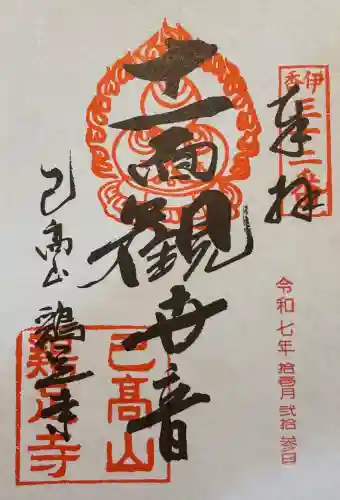 奉拝
伊香三十三番
令和七年拾壱月弐拾参日
十一面観世音
己高山
鶏足寺
己高山
鶏足寺